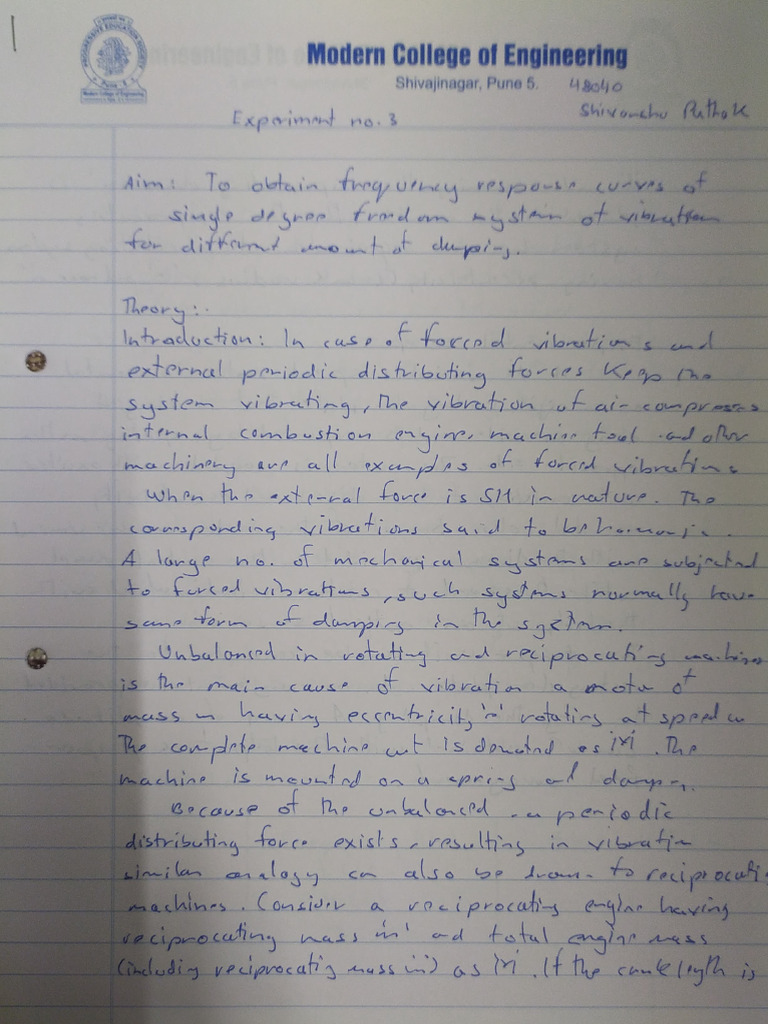 PROGRESSIVE EDUCATION SOCIETY
Pune - 5
Modern College of Engineering
Modern College of Engineering
Shivajinagar, Pune 5.
48040
Experiment no. 3
Aim: To obtain frequency response curves of
single degree freedom system of vibration
for different amount of damping.
Theory:
Introduction: In case of forced vibrations and
external periodic distributing forces keep the
system vibrating, The vibration of air compressors
internal combustion engine, machine tool and other
machinery are all examples of forced vibrations
When the external force is SH in nature. The
corresponding vibrations said to be harmonic.
A large no. of mechanical systems are subjected
to forced vibrations, such systems normally have
some form of damping in the system.
Unbalanced in rotating and reciprocating machines
is the main cause of vibration a motor of
mass m having eccentricity 'e' rotating at speed ω
The complete machine wt is denoted as 'M'. The
machine is mounted on a spring and damper.
Because of the unbalanced a periodic
distributing force exists, resulting in vibration
similar analogy can also be drawn to reciprocati
machines. Consider a reciprocating engine having
reciprocating mass 'm' and total engine mass
(including reciprocatig mass m) as 'M'. If the crank length is